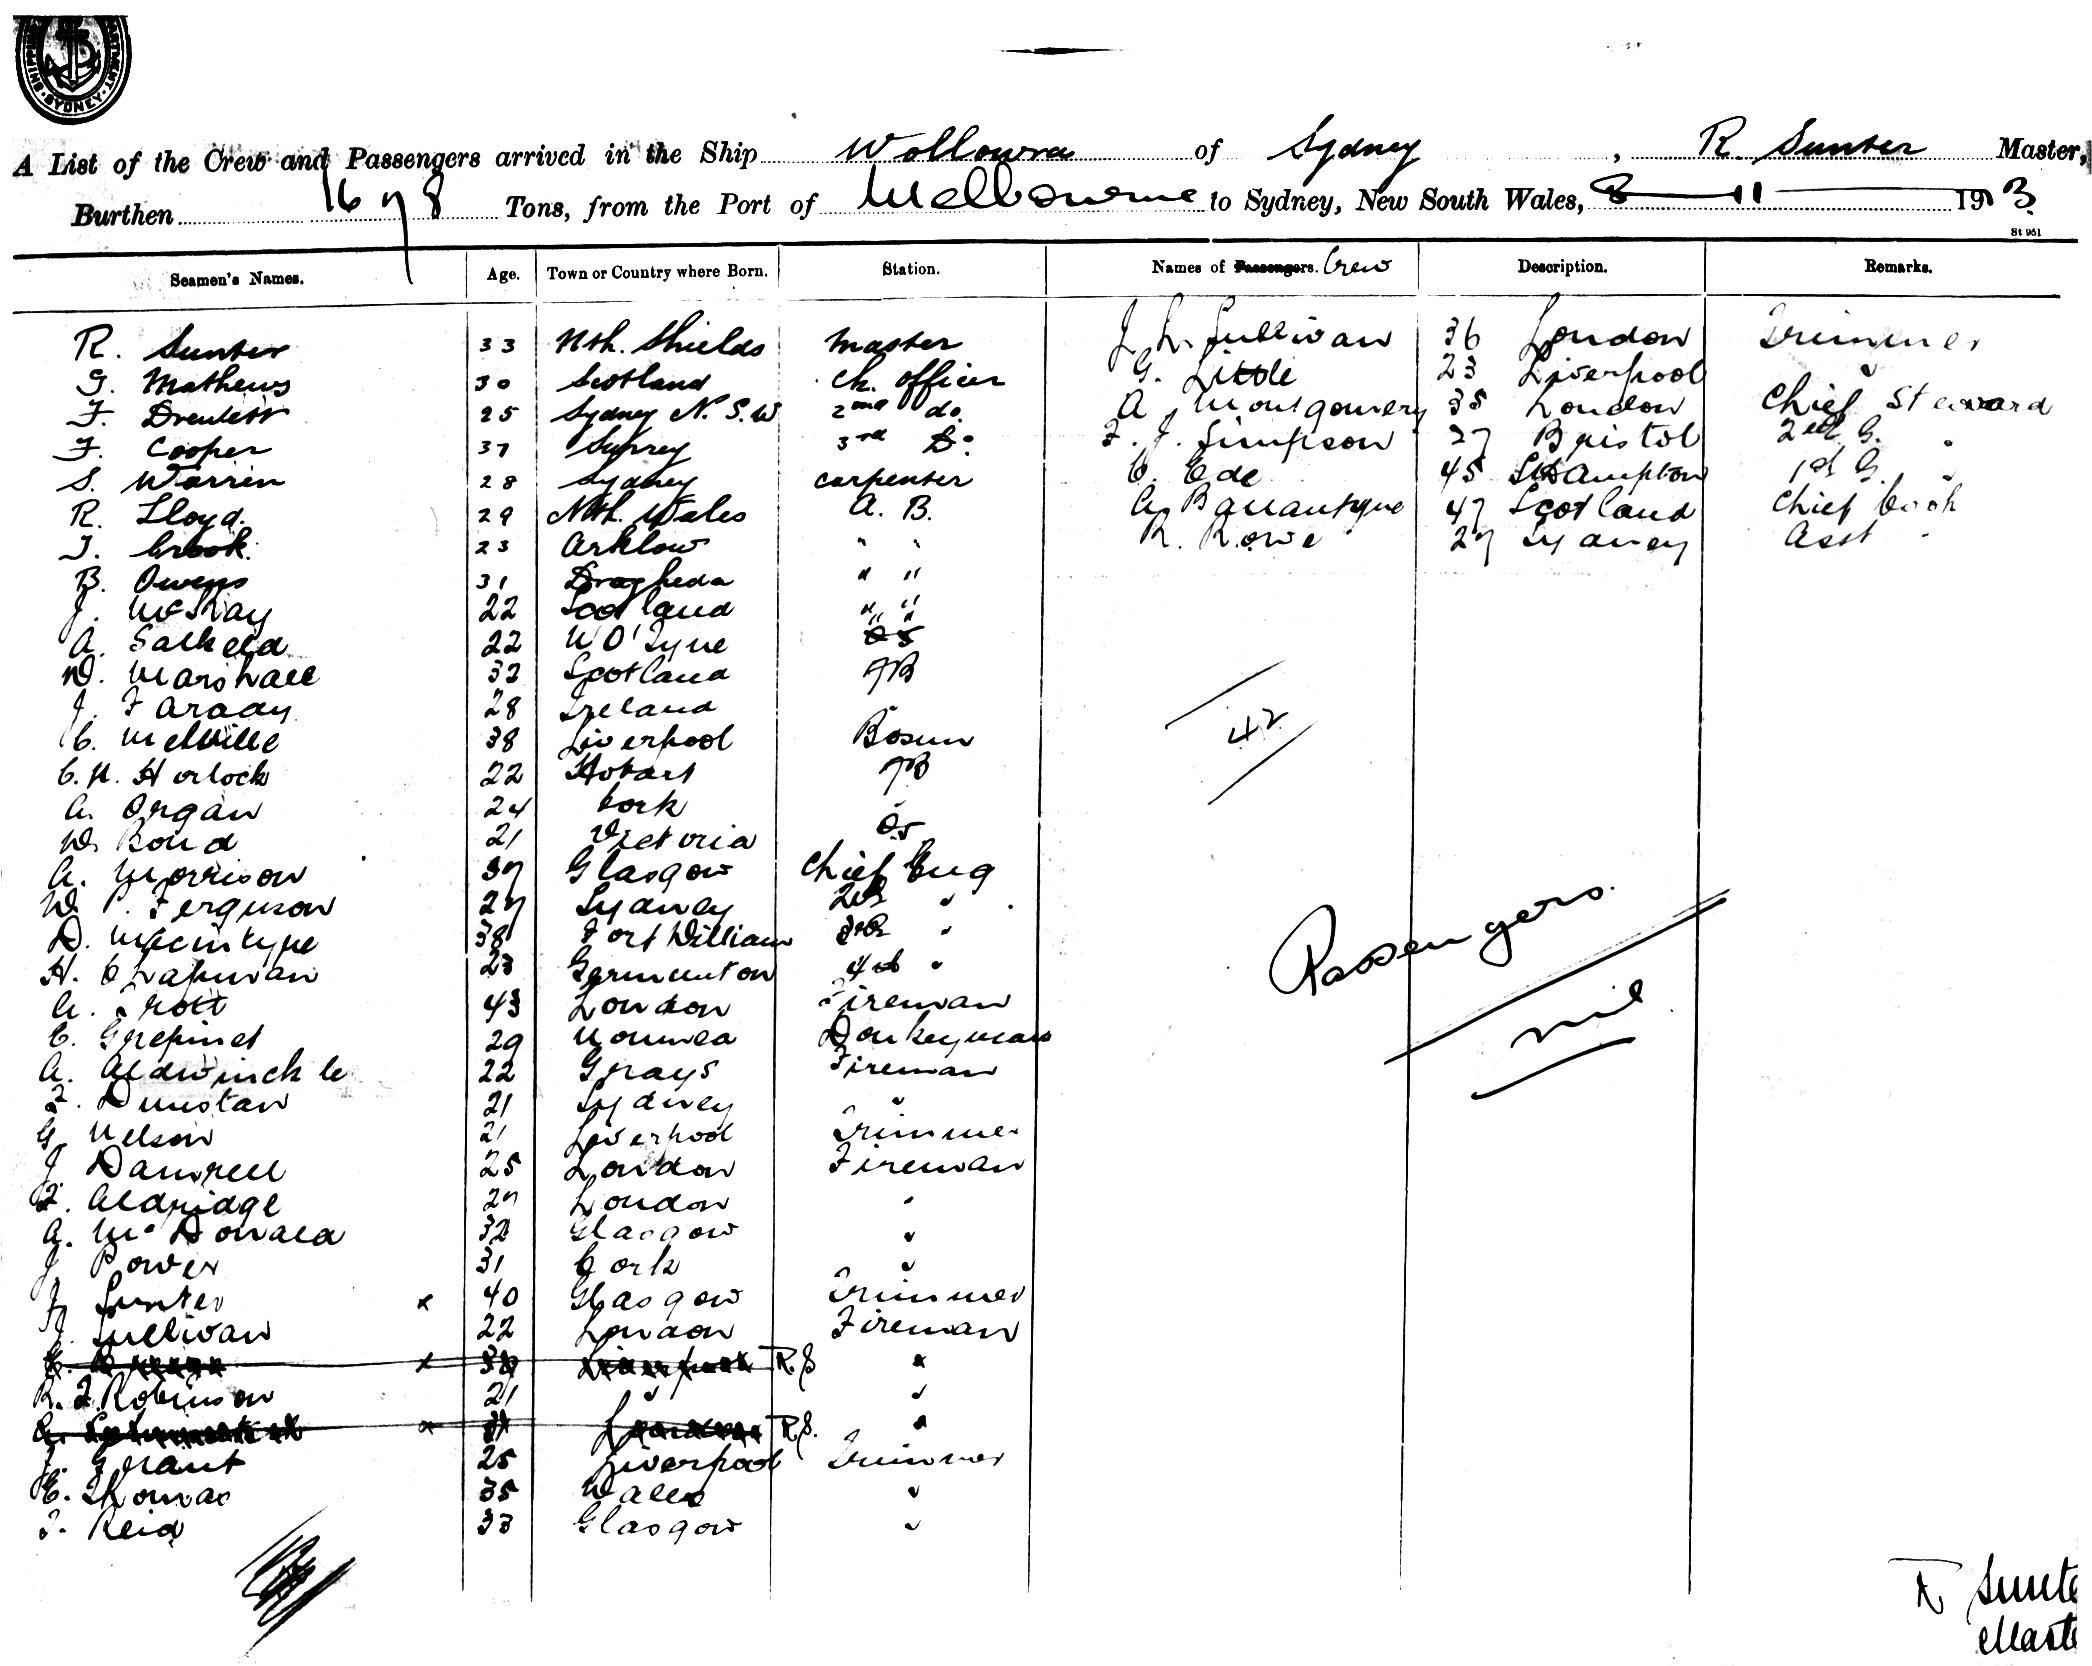 SHIPPING DEPARTMENT SYDNEY
A List of the Crew and Passengers arrived in the Ship Wollowra of Sydney, R. Sunter Master,
Burthen 1678 Tons, from the Port of Melbourne to Sydney, New South Wales, 8 11 1913
St 951
Seamen's Names. Age. Town or Country where Born. Station. Names of Passengers. Crew Description. Remarks.
R. Sunter 33 Nth. Shields Master J. Sullivan 36 London Trimmer
G. Mathews 30 Scotland Ch. officer G. Little 23 Liverpool "
F. 25 Sydney N.S.W 2nd do. A. Montgomery 35 London Chief Steward
F. Cooper 37 Surrey 3rd Do F. J. Simpson 27 Bristol 2nd S. "
S. Warrin 28 Sydney carpenter C. Ede 45 SHampton 1st S. "
R. Lloyd. 29 Nth. Wales A. B. A. Ballantyne 47 Scotland Chief Cook
T. Crook. 23 Arklow " " R. Rowe 27 Sydney Asst "
B. Owens 31 Drogheda " "
J. McKay 22 Scotland " "
A. Salkeld 22 N O' Tyne OS
D. Marshall 32 Scotland AB
J. Farady 28 Ireland "
C. Melville 38 Liverpool Bosun
C. H. Horlock 22 Hobart AB
A. Organ 24 Cork "
W. Bond 21 Victoria OS
A. Morrison 37 Glasgow Chief Eng
W. P. Ferguson 27 Sydney 2nd "
D. McCintype 38 Fort William 3rd "
H. Chapman 23 Germunton 4th "
A. Trott 43 London Fireman
C. Grepinet 29 Noumea Donkeyman
A. Aldwinckle 22 Grays Fireman
F. Dunstan 21 Sydney "
G. Nelson 21 Liverpool Trimmer
J. Damrell 25 London Fireman
F. Aldridge 27 London "
A. McDonald 32 Glasgow "
J. Power 31 Cork "
J. Sunter x 40 Glasgow Trimmer
J. Sullivan 22 London Fireman
x 38 Liverpool R.S "
R. F. Robinson 21 " "
x R.S. "
J. Grant 25 Liverpool Trimmer
E. Thomas 35 Wales "
J. Reid 33 Glasgow "
42
Passengers
nil
R Sunte
Maste